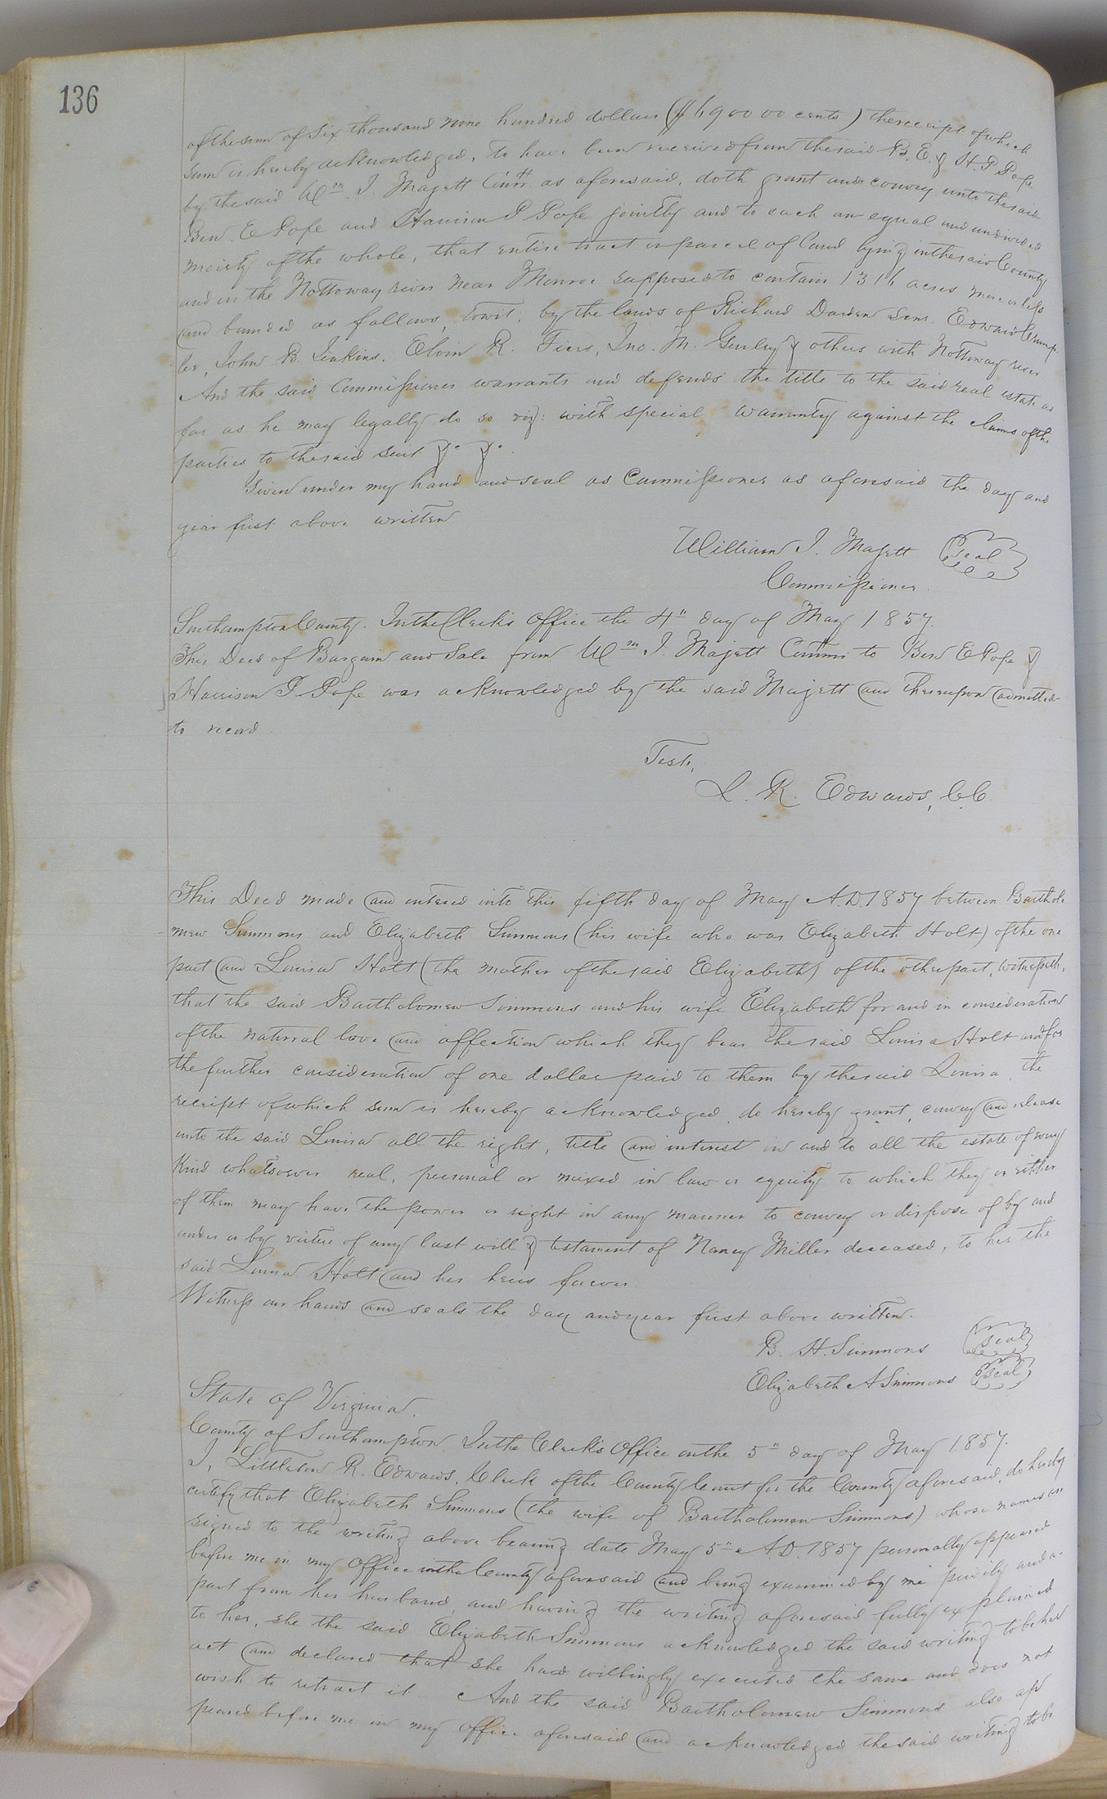 136
of the sum of Six thousand nine hundred dollars ($6900 00 cents) the receipt of which
sum is hereby acknowledged, to have been received from the said B. E. & H. P. Pope
by the said Wm. J. Majett Comr. as aforesaid, doth grant and convey unto the said
Ben. E Pope and Harrison P Pope jointly and to each an equal and undivided
moiety of the whole, that entire tract or parcel of land lying in the said County
and on the Nottoway river near Monroe supposed to contain 1316 acres more or less
and bounded as follows, towit, by the lands of Richard Darden Senr. Edward Crump
ler, John B Jenkins, Elvin R. Jno. M. Gurley & others with Nottoway river
And the said Commissioner warrants and defends the title to the said real estate as
far as he may legally do so viz: with special warranty against the claims of the
parties to the said suit &c. &c.
Given under my hand and seal as Commissioner as aforesaid the day and
year first above written
William J. Majett Seal
Commissioner.
Southampton County. In the Clerk's Office the 4" day of May 1857.
This Deed of Bargain and Sale from Wm J. Majett Commr to Ben E Pope &
Harrison P Pope was acknowledged by the said Majett and thereupon admitted
to record
Teste,
L. R. Edwards, C.C.
This Deed made and entered into this fifth day of May A.D. 1857 between Bartholo
mew Simmons and Elizabeth Simmons (his wife who was Elizabeth Holt) of the one
part and Louisa Holt (the mother of the said Elizabeth) of the other part, witnesseth,
that the said Bartholomew Simmons and his wife Elizabeth for and in consideration
of the natural love and affection which they bear the said Louisa Holt and for
the further consideration of one dollar paid to them by the said Louisa, the
receipt of which sum is hereby acknowledged, do hereby grant, convey and release
unto the said Louisa all the right, title and interest in and to all the estate of every
kind whatsoever real, personal or mixed in law or equity to which they or either
of them may have the power or right in any manner to convey or dispose of by and
under or by virtue of any last will & testament of Nancy Miller deceased, to her the
said Louisa Holt and her heirs forever
Witness our hands and seals the day and year first above written.
B. H. Simmons Seal
Elizabeth A Simmons Seal
State of Virginia.
County of Southampton, In the Clerk's Office on the 5" day of May 1857.
I, Littleton R. Edwards, Clerk of the County Court for the County aforesaid, do hereby
certify that Elizabeth Simmons (the wife of Bartholomew Simmons) whose names are
signed to the writing above bearing date May 5" A.D. 1857 personally appeared
before me in my Office in the County aforesaid and being examined by me privily and a-
part from her husband, and having the writing aforesaid fully explained
to her, she the said Elizabeth Simmons acknowledged the said writing to be her
act and declared that she had willingly executed the same and does not
wish to retract it. And the said Bartholomew Simmons also ap
peared before me in my office aforesaid and acknowledged the said writing to be